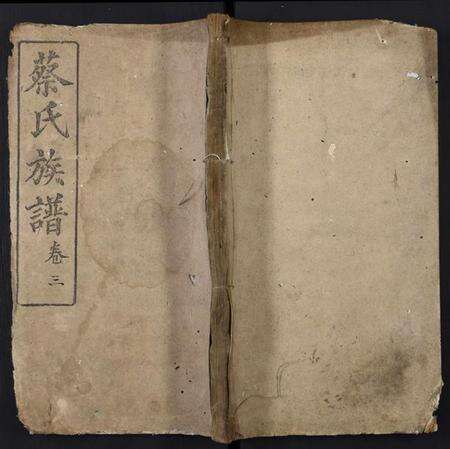 蔡氏族譜卷三